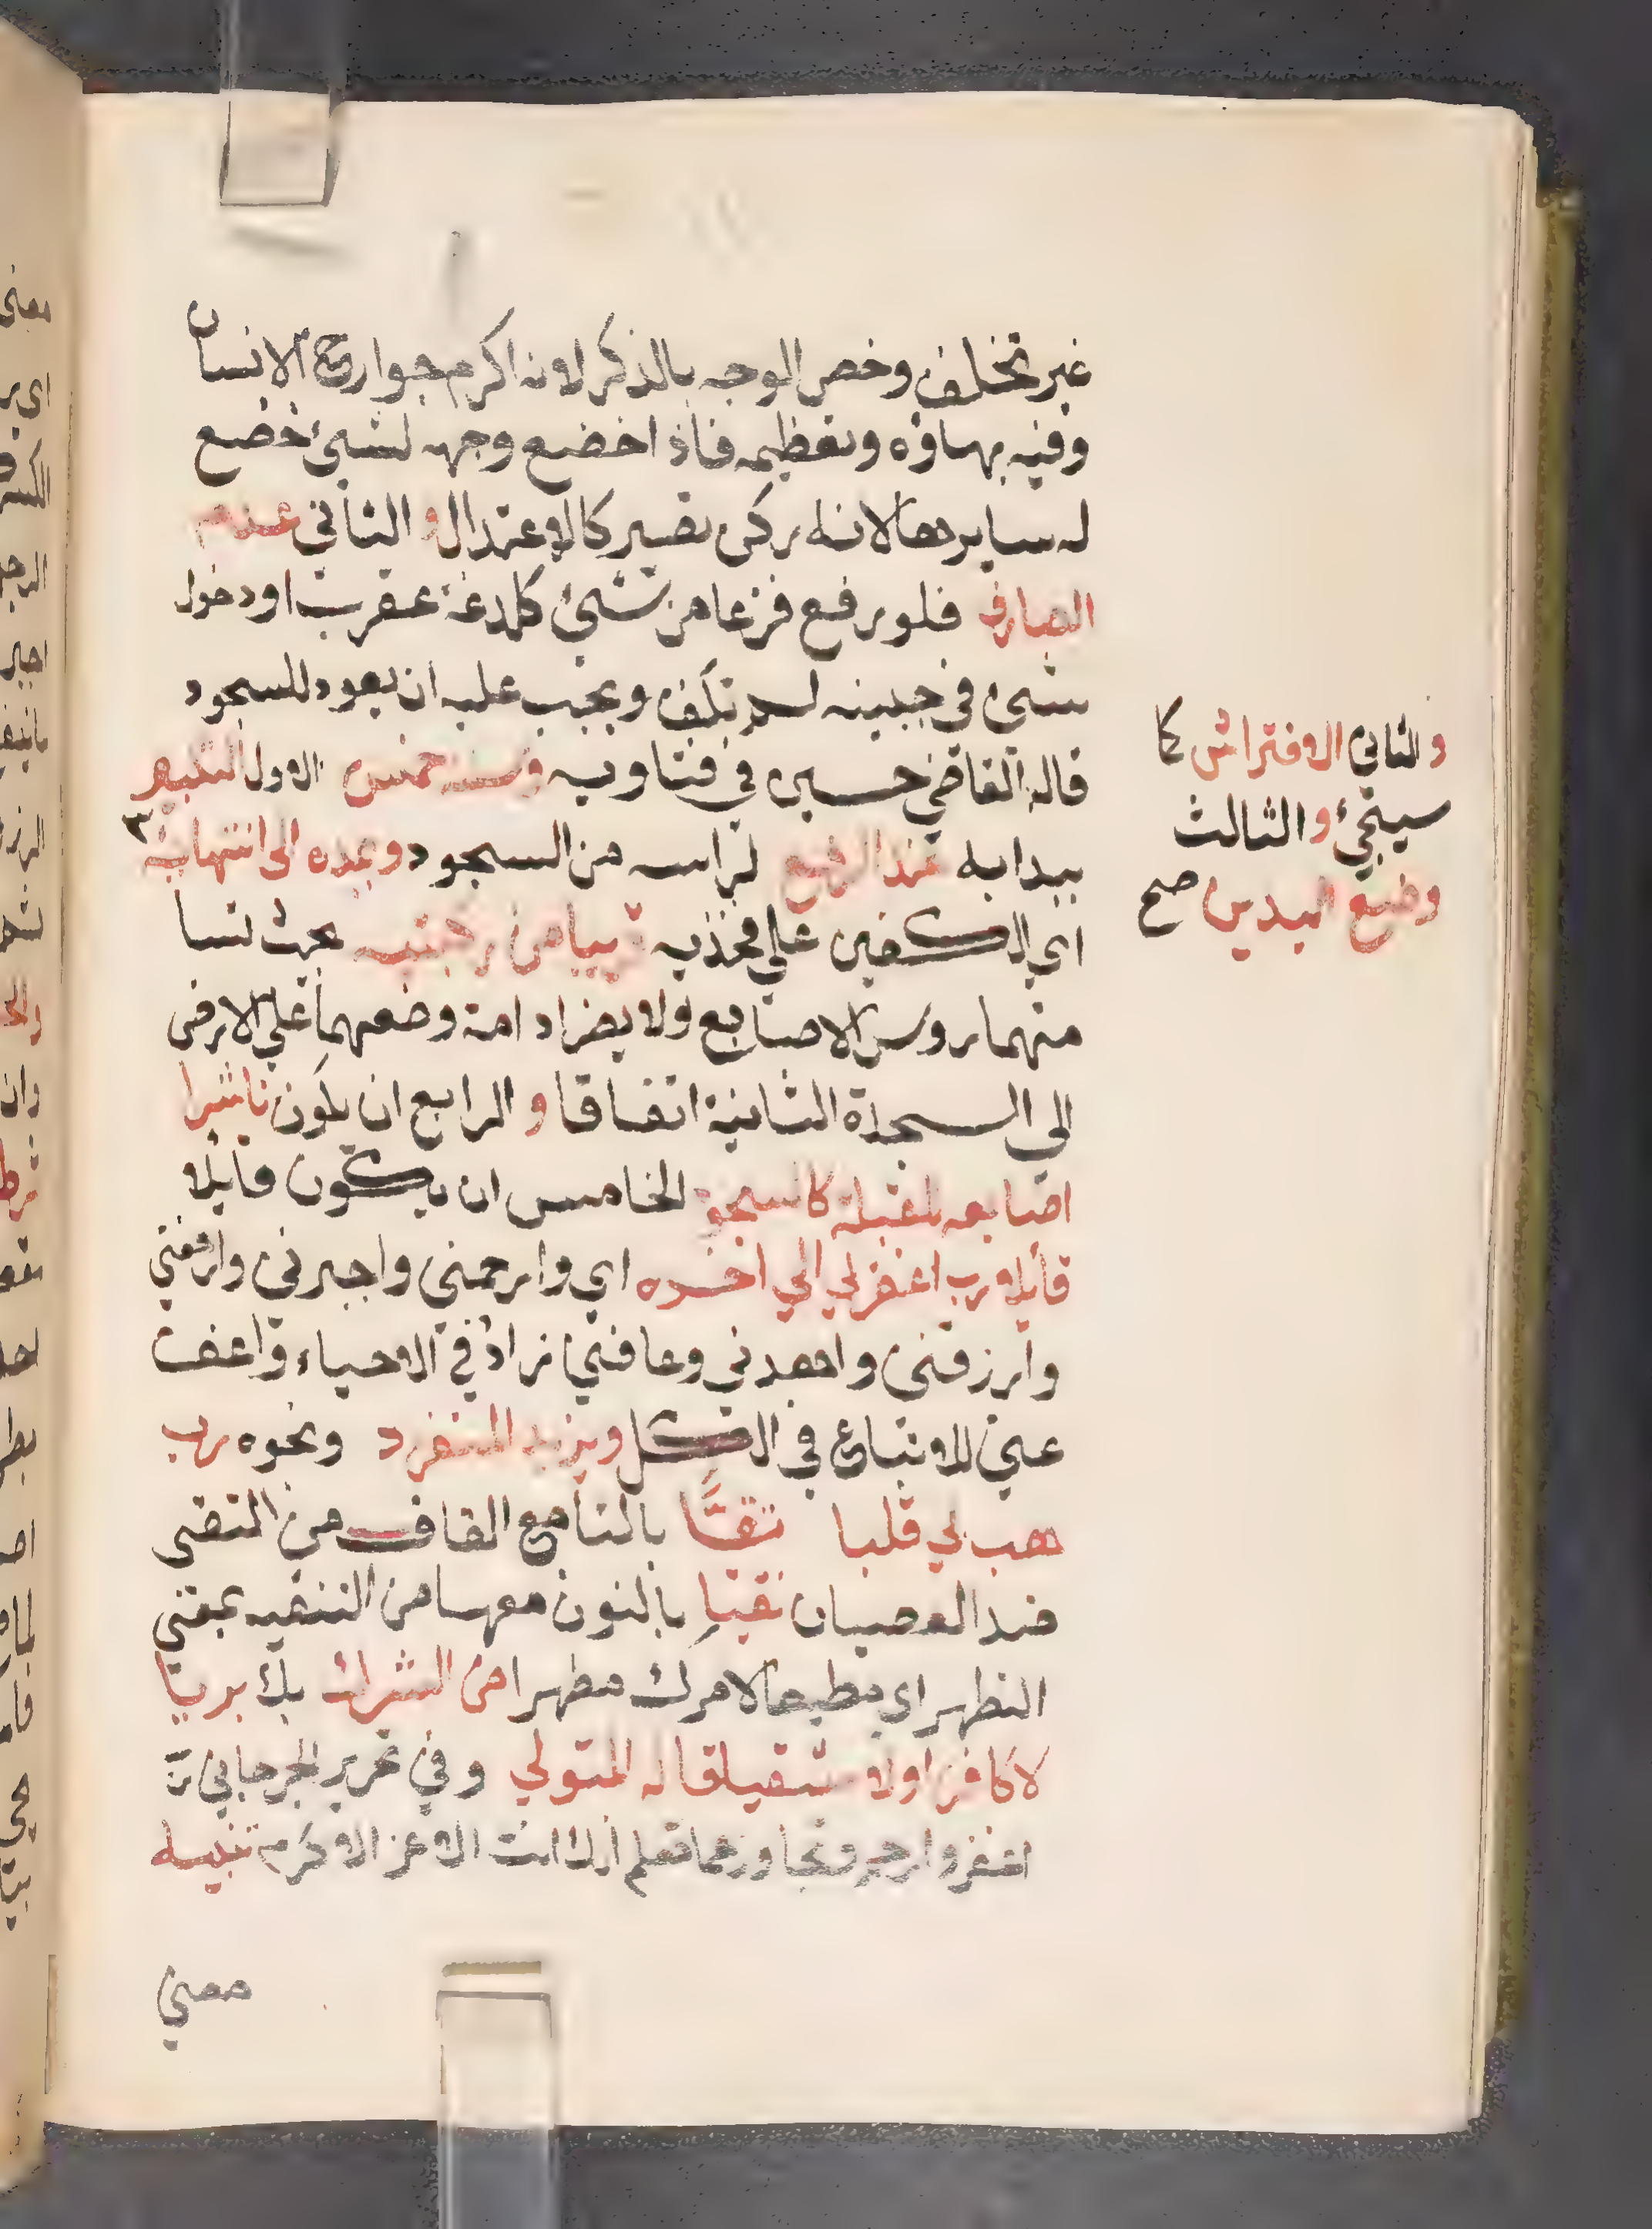 غير تخلف وخص الوجه بالذكر لانه اكرم جوارح الانسان
وفيه بهاؤه وتعظيمه فاذا خضع وجهه لشيء خضع
له سايرها لانه ركن تصير كالاعتدال والثاني عدم
الصارف فلو رفع فزعا من شيء كلدغة عقرب او دخول
شيء في جبينه لم يكف ويجب عليه ان يعود للسجود
قاله القاضي حسين في فتاويه وسننه خمس الاول التكبير
يبدا به عند الرفع لراسه من السجود ومده الى انتهائه
اي الكفين علي فخذيه قريبا من ركبتيه بحيث تسا
منهما روس الاصابع ولا يضر ادامة وضعهما علي الارض
الي السجدة الثانية اتفاقا و الرابع ان يكون ناشرا
اصابعه للقبلة كالسجود الخامس ان يكون قايلا
قايلا رب اغفر لي الي اخره اي وارحمني واجبرني وارفعني
وارزقني واهدني وعافني زاد في الاحياء واعف
عني للاتباع في الكل ويزيد المنفرد ونحوه رب
هب لي قلبا تقيا بالتا مع القاف من التقى
ضد العصيان نقيا بالنون معها من التنقيه بمعني
التطهر اي مطيعا لامرك مطهرا من الشرك بك بريا
لا كافرا ولا شقيا قاله المتولي وفي تحرير الجرجاني
اغفر وارحم وتجاوز عما تعلم انك انت الاعز الاكرم تنبيه
معني
والثاني الافتراش كا
سيجيء والثالث
وضع اليدين صح